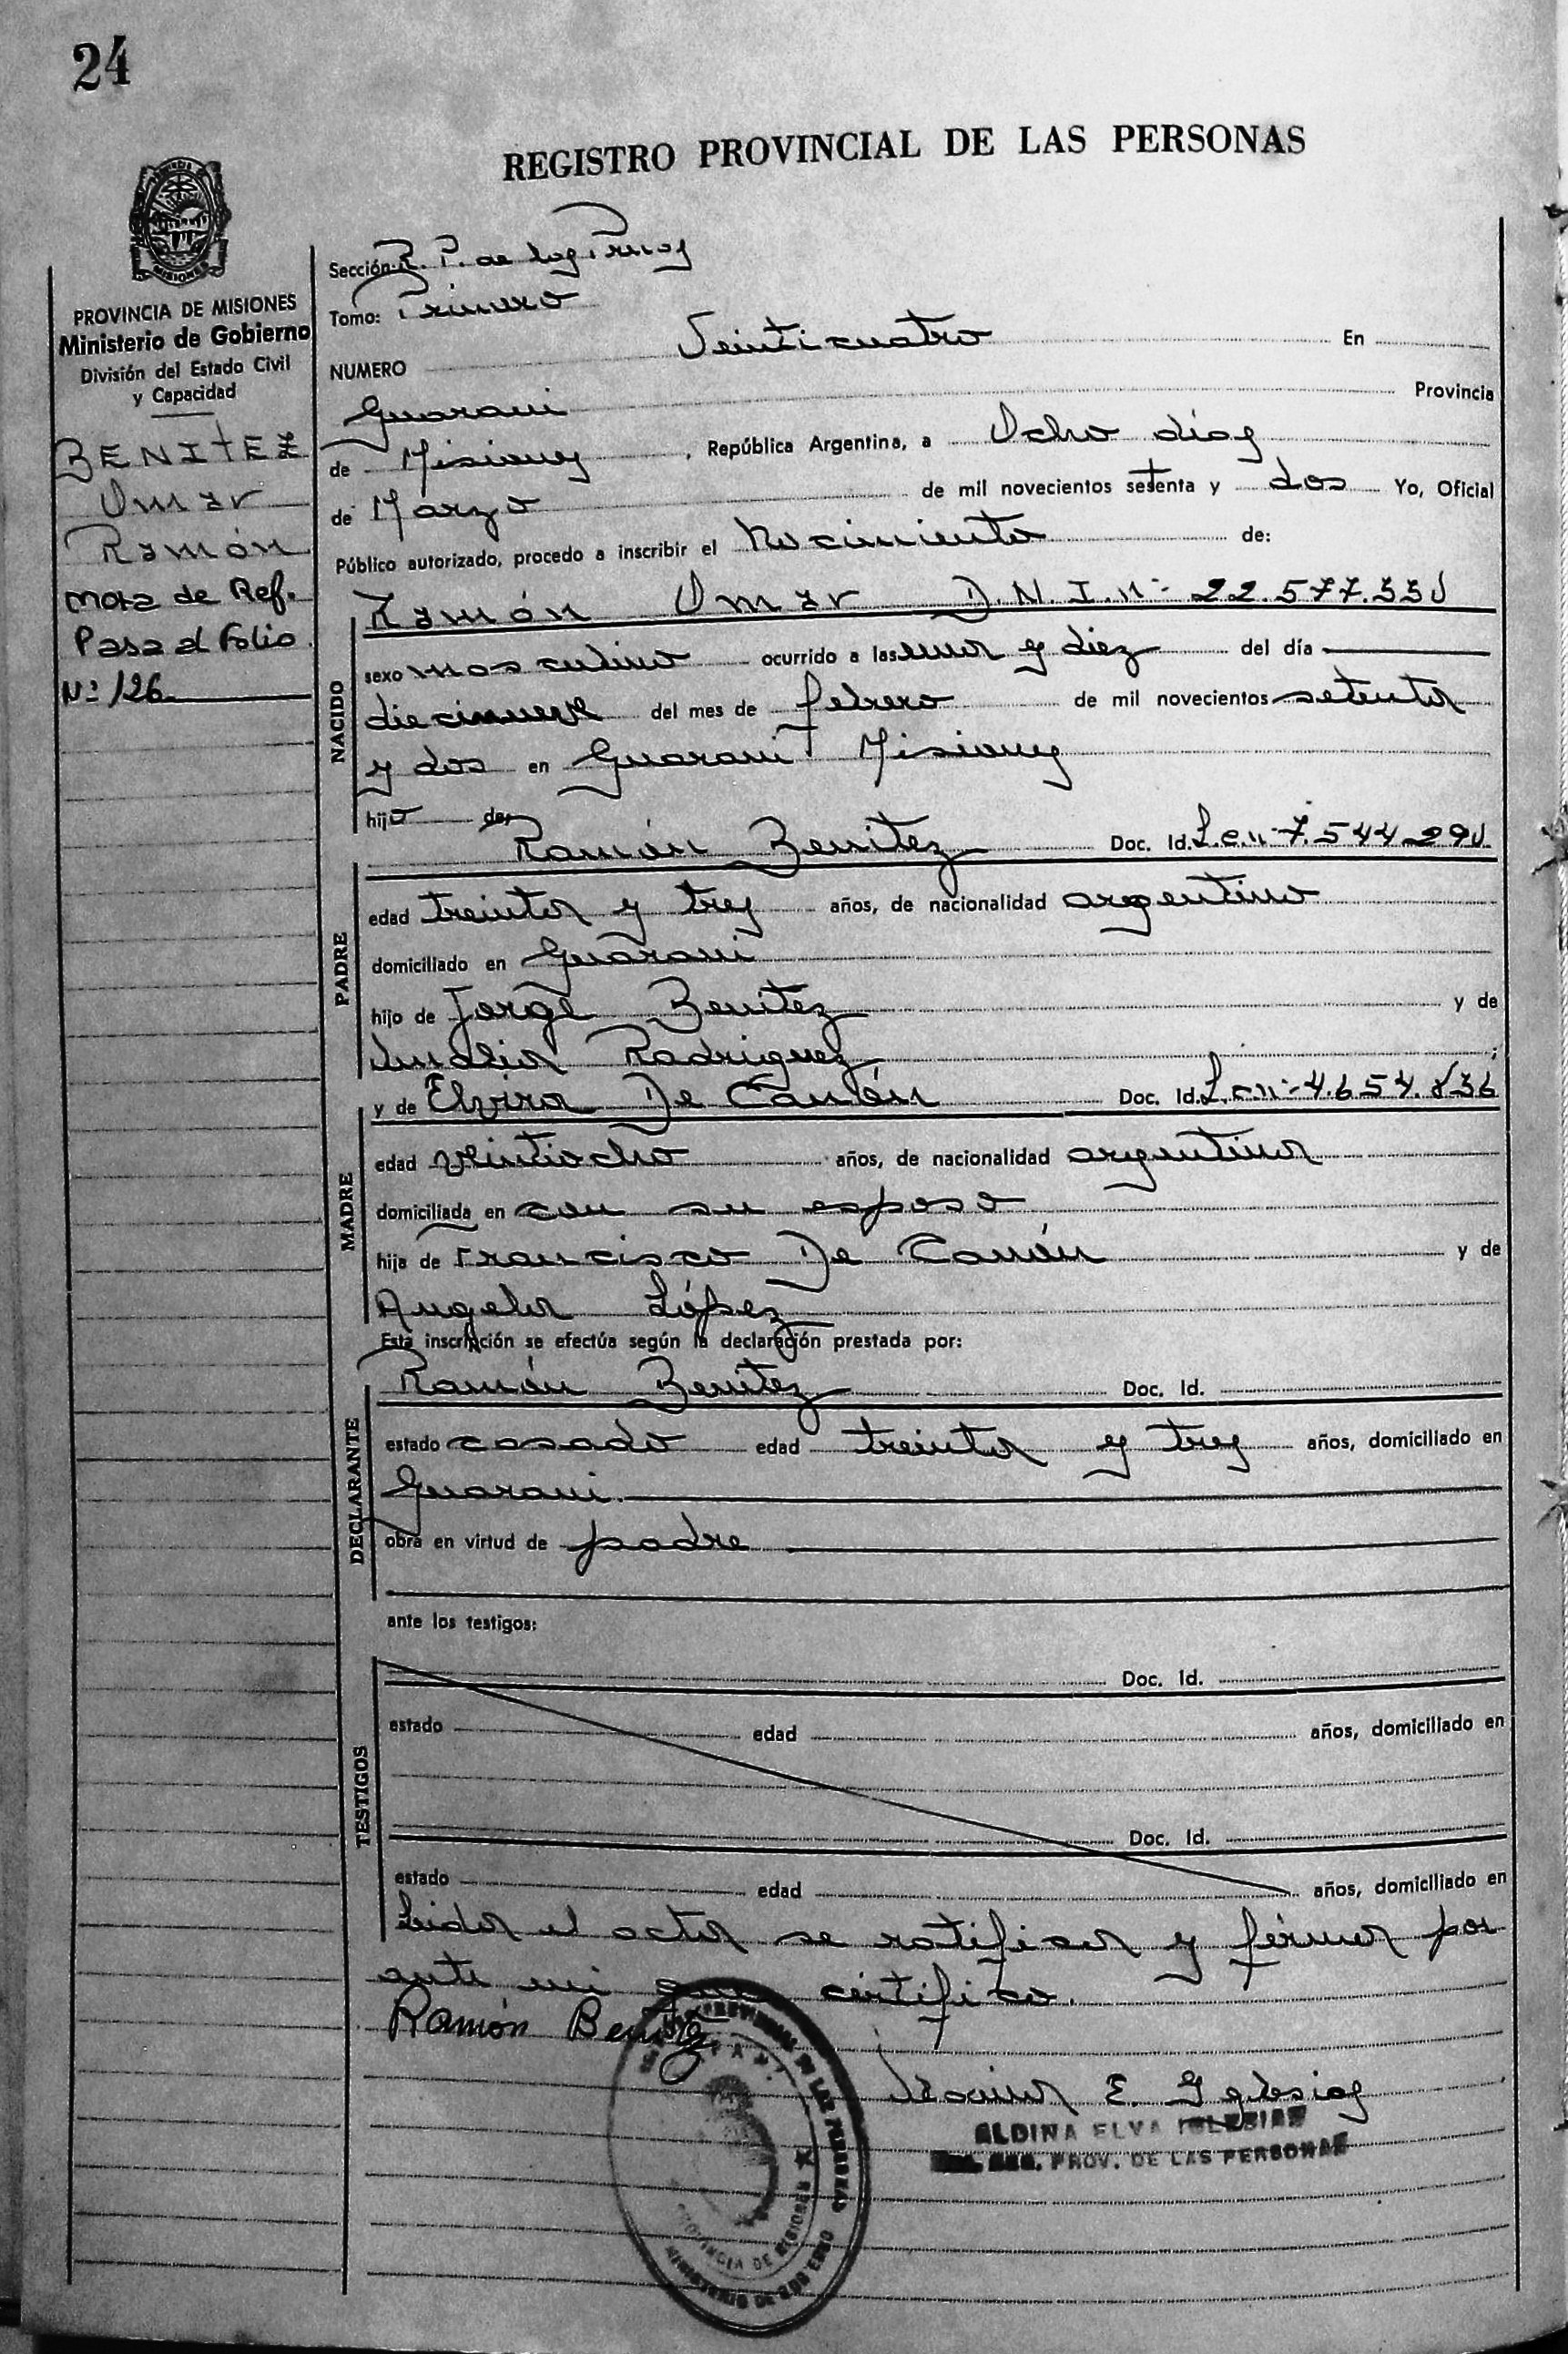 24
REGISTRO PROVINCIAL DE LAS PERSONAS
PROVINCIA DE MISIONES
Ministerio de Gobierno
División del Estado Civil
y Capacidad
BENITEZ
Omar
Ramón
Nota de Ref.
Pasa al Folio
Nº 126
Sección: R. P. de las
Tomo: Primero
NUMERO Veinticuatro En
Guarani Provincia
de Misiones, República Argentina, a Ocho días
de Marzo de mil novecientos setenta y dos Yo, Oficial
Público autorizado, procedo a inscribir el Nacimiento de:
Ramón Omar D.N.I. nº 22.577.330
NACIDO
sexo masculino ocurrido a las una y diez del día
diecinueve del mes de febrero de mil novecientos setenta
y dos en Guarani Misiones
hijo de:
Ramón Benitez Doc. Id. L.e.nº 7.544.290
PADRE
edad treinta y tres años, de nacionalidad argentino
domiciliado en Guarani
hijo de Jorge Benitez y de
Rodriguez;
y de Elvira De Doc. Id. L.c.nº 4.654.836
MADRE
edad veintiocho años, de nacionalidad argentina
domiciliada en con su esposo
hija de Francisco De y de
Angela López
Esta inscripción se efectúa según la declaración prestada por:
Ramón Benitez Doc. Id.
DECLARANTE
estado casado edad treinta y tres años, domiciliado en
Guarani.
obra en virtud de padre
ante los testigos:
TESTIGOS
Doc. Id.
estado edad años, domiciliado en
Doc. Id.
estado edad años, domiciliado en
Leida el acta se ratifica y firma por
ante mi que certifico.
Ramón Benitez
E. Iglesias
ALDINA ELVA IGLESIAS
REG. PROV. DE LAS PERSONAS
PROVINCIA DE MISIONES
MINISTERIO DE GOBIERNO